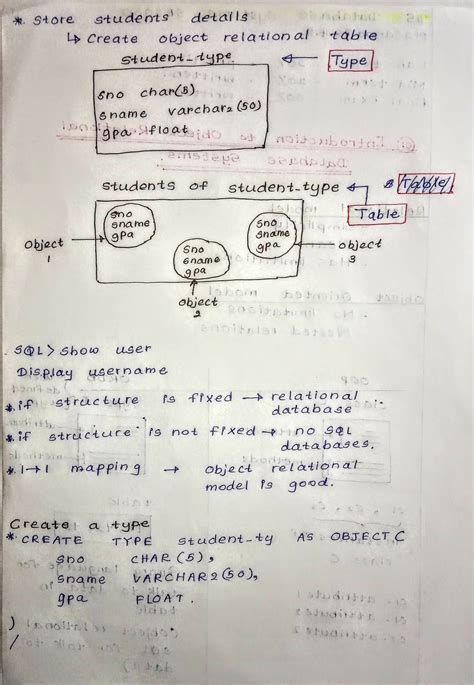 * Store students' details
↳ Create object relational table
student_type
Type
sno char(5)
sname varchar2 (50)
gpa float
students of student_type
Table
sno
sname
gpa
sno
sname
gpa
sno
sname
gpa
object
1
object
2
object
3
SQL> Show user
Display username
* if structure is fixed → relational
database
* if structure is not fixed → no sql
databases.
* 1→1 mapping → object relational
model is good.
Create a type
* CREATE TYPE student_ty AS OBJECT (
sno CHAR (5),
sname VARCHAR2 (50),
gpa FLOAT.
)
/